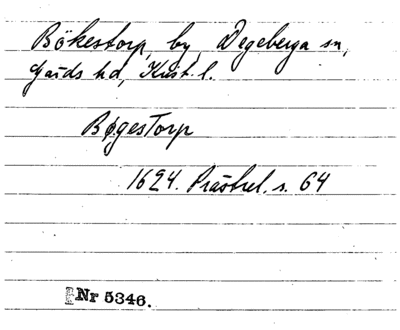 Bökestorp, by, Degeberga sn,
Gärds hd, Krist. l.
BøgesTorp
1624. Prästrel. s. 64
Nr 5346.